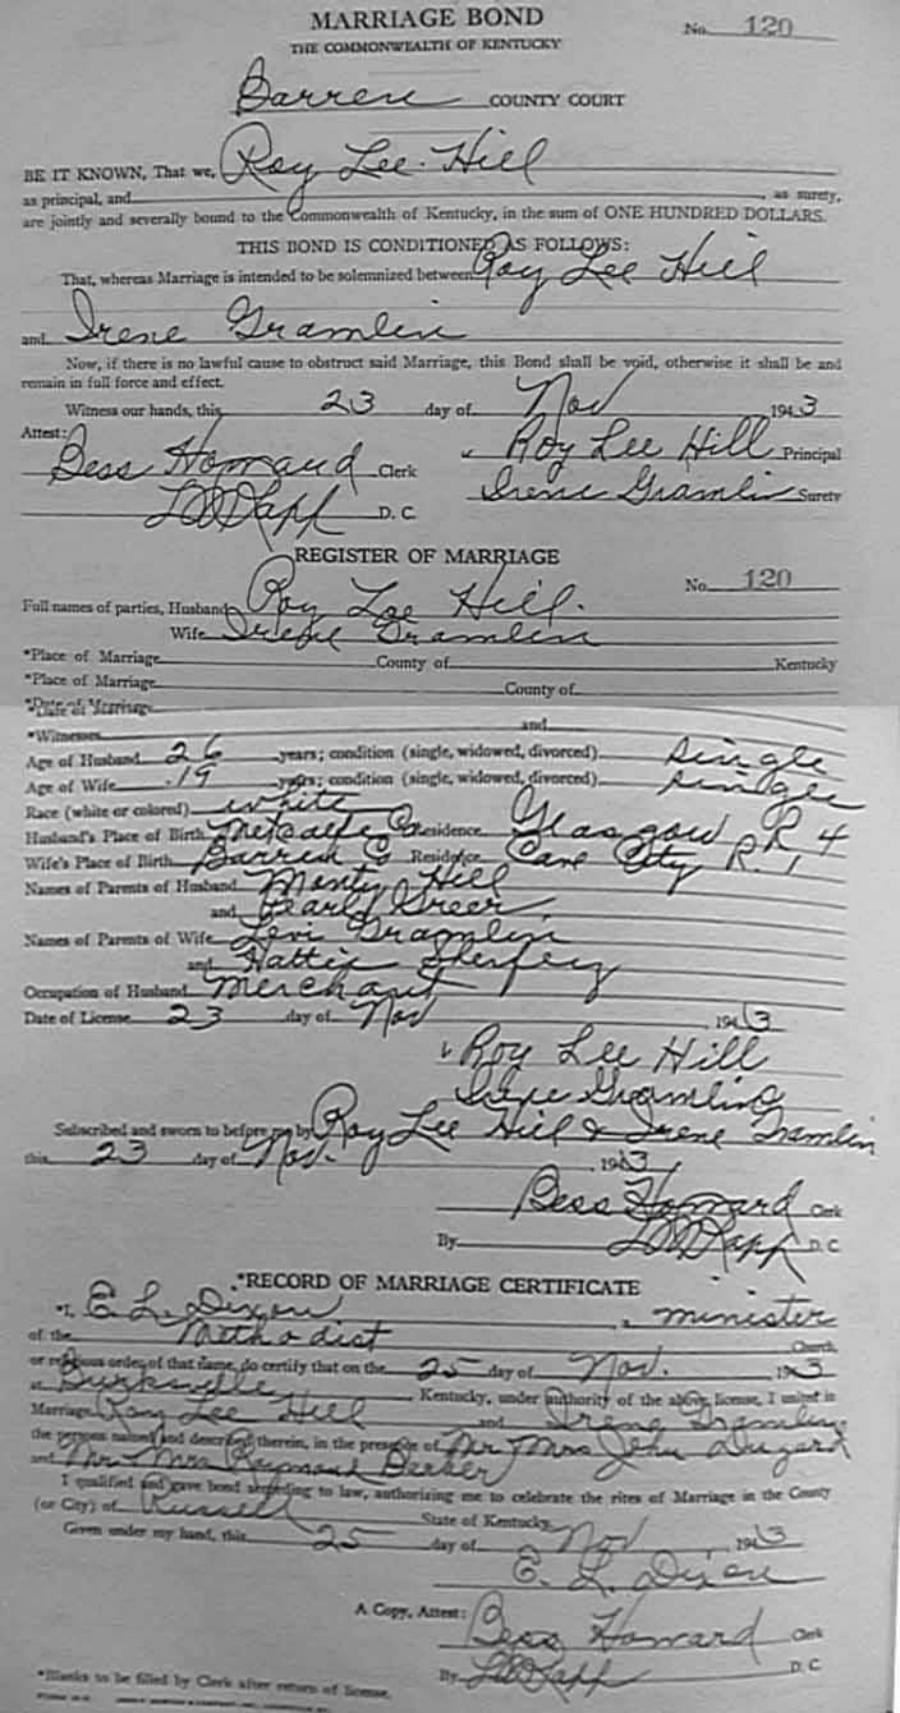 MARRIAGE BOND
No. 120
THE COMMONWEALTH OF KENTUCKY
Barren COUNTY COURT
BE IT KNOWN, That we, Roy Lee Hill
as principal, and as surety,
are jointly and severally bound to the Commonwealth of Kentucky, in the sum of ONE HUNDRED DOLLARS.
THIS BOND IS CONDITIONED AS FOLLOWS:
That, whereas Marriage is intended to be solemnized between Roy Lee Hill
and Irene Gramlin
Now, if there is no lawful cause to obstruct said Marriage, this Bond shall be void, otherwise it shall be and
remain in full force and effect.
Witness our hands, this 23 day of Nov 1943
Attest:
Roy Lee Hill Principal
Bess Howard Clerk
Irene Gramlin Surety
D. C.
REGISTER OF MARRIAGE
No. 120
Full names of parties, Husband Roy Lee Hill.
Wife Irene Gramlin
*Place of Marriage County of Kentucky
*Place of Marriage County of
*Date of Marriage
*Witnesses and
Age of Husband 26 years; condition (single, widowed, divorced) single
Age of Wife 19 years; condition (single, widowed, divorced) single
Race (white or colored) white
Husband's Place of Birth Metcalfe Co Residence Glasgow R R 4
Wife's Place of Birth Barren Co Residence Cave City R. 1
Names of Parents of Husband Monty Hill
and Pearl Greer
Names of Parents of Wife Levi Gramlin
and Hattie
Occupation of Husband Merchant
Date of License 23 day of Nov 1943
Roy Lee Hill
Irene Gramling
Subscribed and sworn to before me by Roy Lee Hill & Irene Gramlin
this 23 day of Nov. 1943
Bess Howard Clerk
By D. C.
*RECORD OF MARRIAGE CERTIFICATE
*I, E. L. Dixon, minister
of the Methodist Church,
or religious order of that name, do certify that on the 25 day of Nov. 1943
at Burksville Kentucky, under authority of the above license, I united in
Marriage Roy Lee Hill and Irene Gramlin
the persons named and described therein, in the presence of Mr Mrs John Dugard
and Mr. Mrs Raymond
I qualified and gave bond according to law, authorizing me to celebrate the rites of Marriage in the County
(or City) of Russell State of Kentucky
Given under my hand, this 25 day of Nov, 1943
E. L. Dixon
A Copy, Attest: Bess Howard Clerk
By D. C.
*Blanks to be filled by Clerk after return of license.